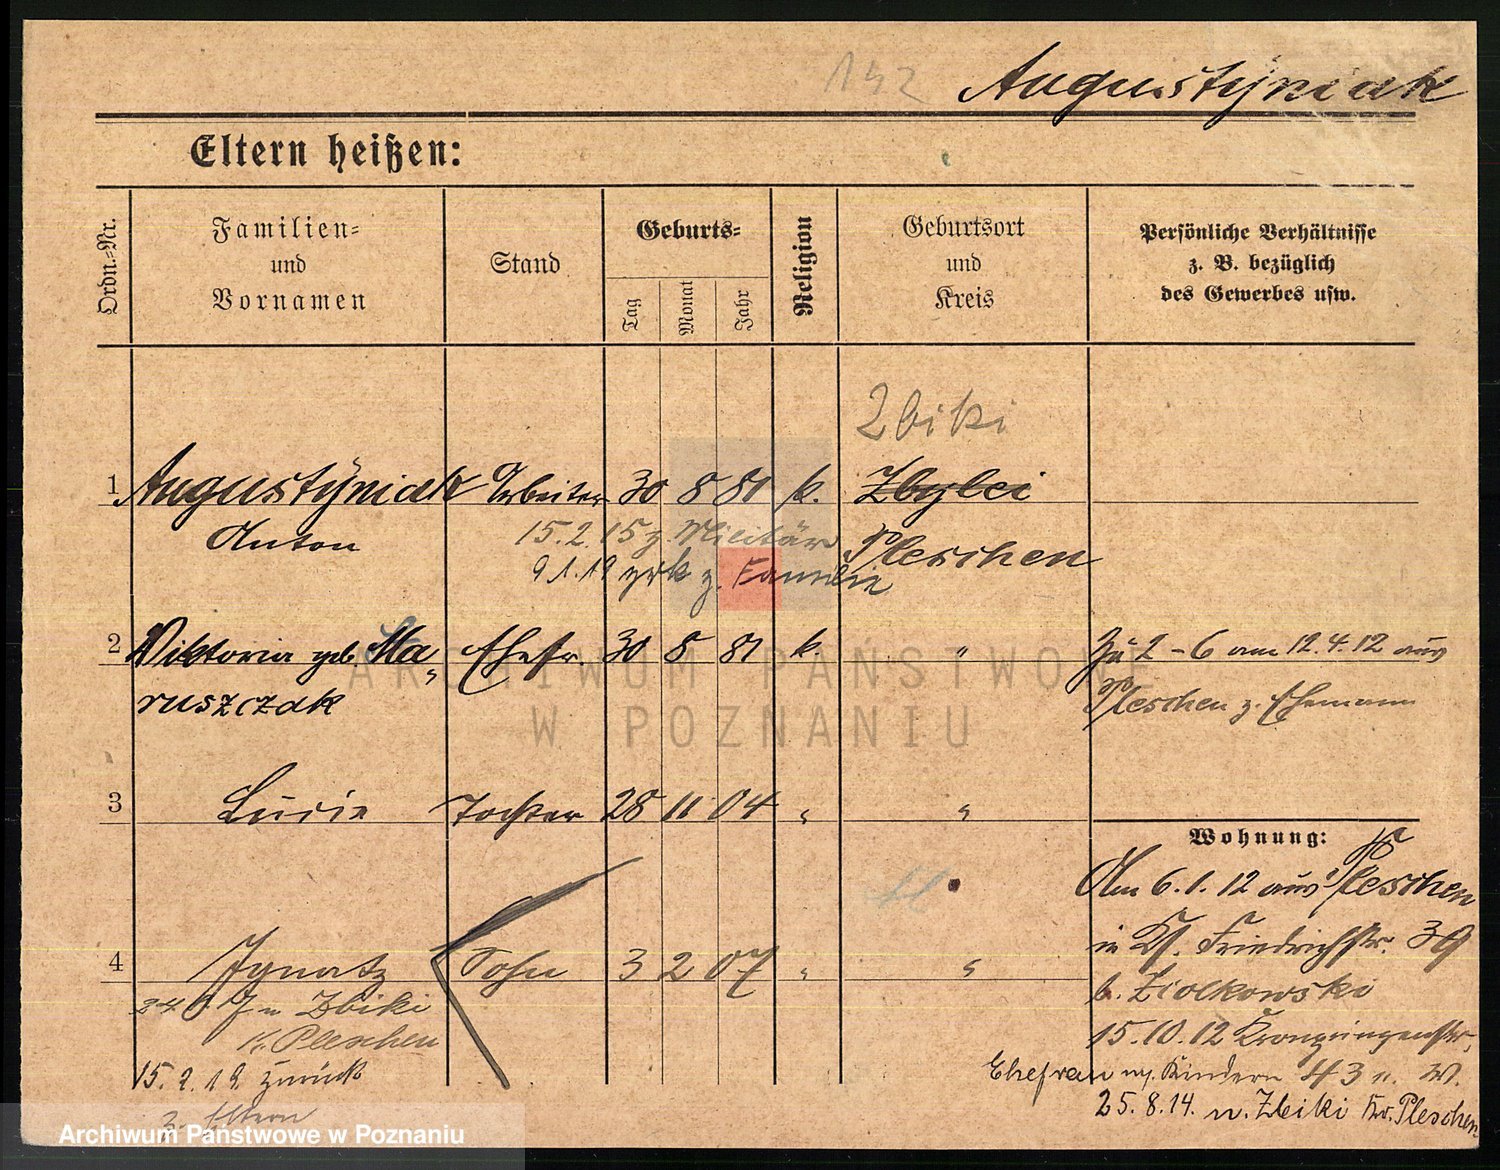 142 Augustÿniak
Eltern heißen:
Ordn.-Nr.
Familien-
und
Vornamen
Stand
Geburts-
Tag
Monat
Jahr
Religion
Geburtsort
und
Kreis
Persönliche Verhältnisse
z. B. bezüglich
des Gewerbes usw.
Zbiki
1 Augustÿniak Arbeiter 30 8 81 k.
Anton
15.2.15 z. Militär
Pleschen
9.1.19 zrk z. Familie
2 Viktoria geb. Ma„ Ehefr. 30 8 81 k. "
ruszczak
Zu 2-6 am 12.4.12 aus
Pleschen z. Ehemann
3 Lucie Tochter 28 11 04 " "
Wohnung:
Am 6.1.12 aus Pleschen
in Friedrichstr. 39
b. Ziolkowski
15.10.12 Kronprinzenstr.
43 n. W.
4 Ignatz Sohn 3 2 07 " "
n Zbiki
Kr. Pleschen
15.2.19. zurück
z. Eltern
Ehefrau m. Kindern
25.8.14. n. Zbiki Kr. Pleschen
ARCHIWUM PAŃSTWOWE
W POZNANIU
Archiwum Państwowe w Poznaniu